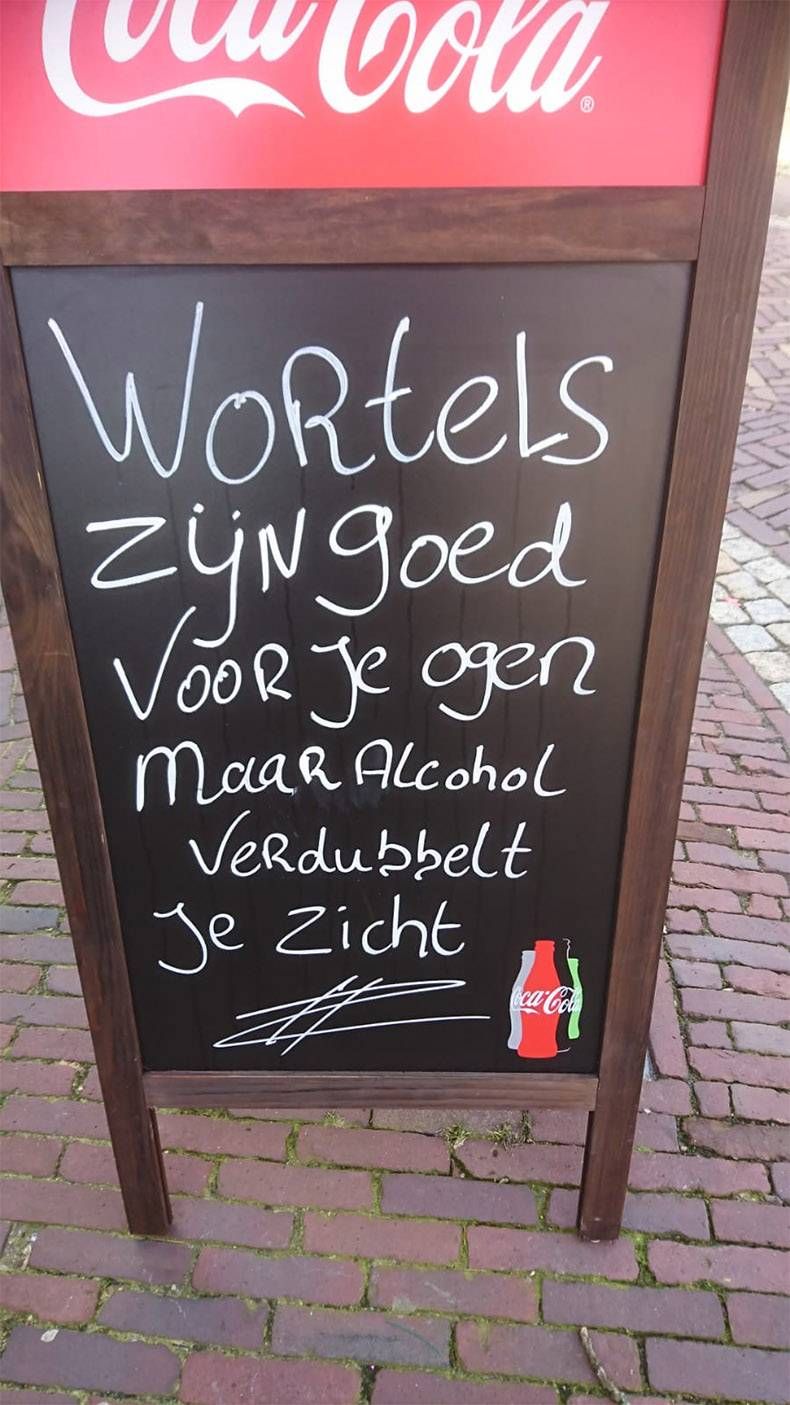 Coca Cola®
WORtelS
ZijN goed
VooR Je ogen
MaaR ALcohol
VeRdubbelt
Je Zicht
Coca-Cola